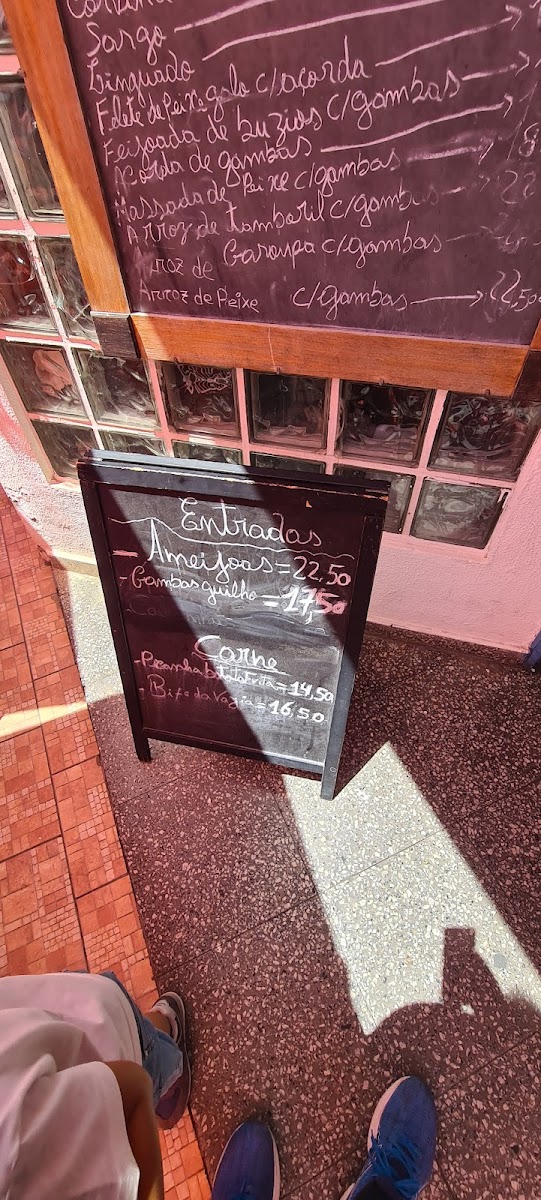 Sargo
Linguado
Filete de Peixe galo c/açorda
Feijoada de buzios c/gambas
Açorda de gambas
Massada de Peixe c/gambas
Arroz de tamboril c/gambas
Arroz de Garoupa c/gambas
Arroz de Peixe c/gambas 22,50
Entradas
- Ameijoas = 22,50
- Gambas guilho = 17,50
Carne
- Picanha batata frita = 14,50
- Bife da vazia = 16,50